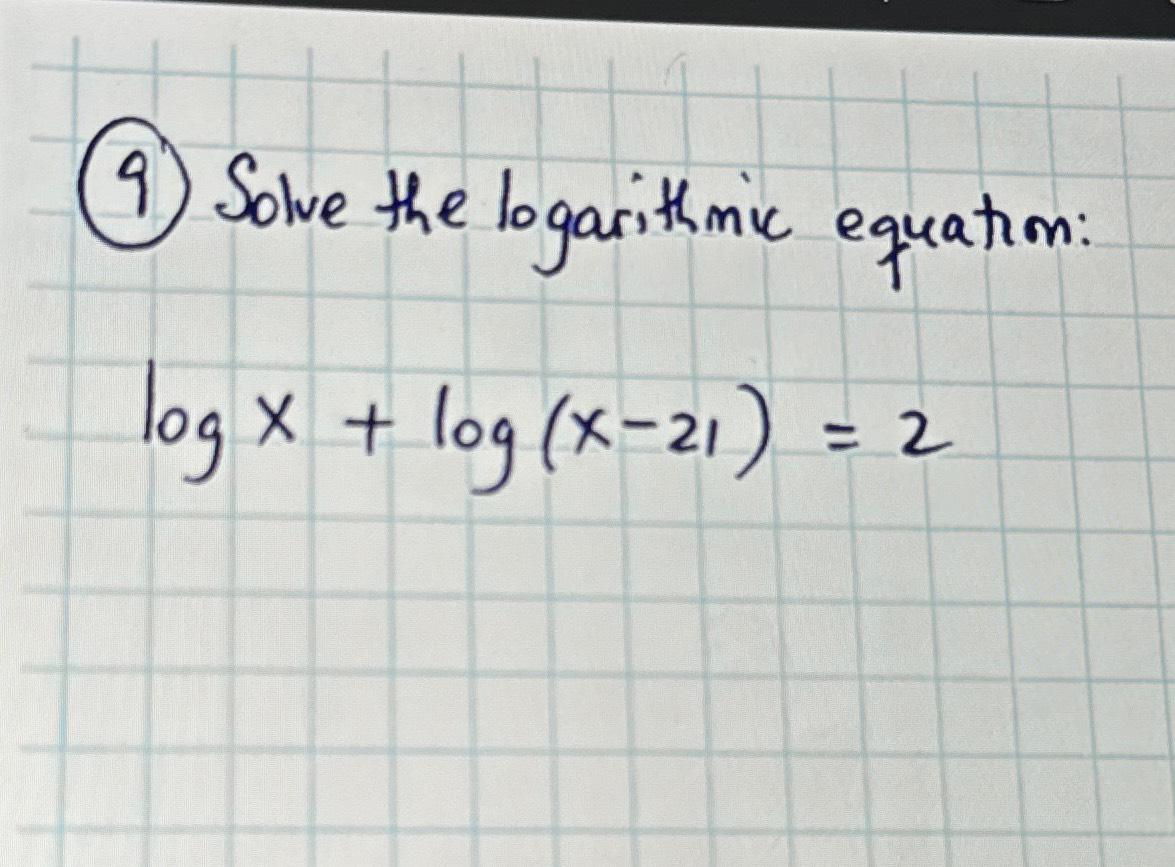 9 Solve the logarithmic equation:
log x + log (x-21) = 2